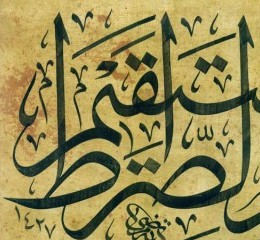 الصِّرَٰطَ المستقيم
١٤٢٧